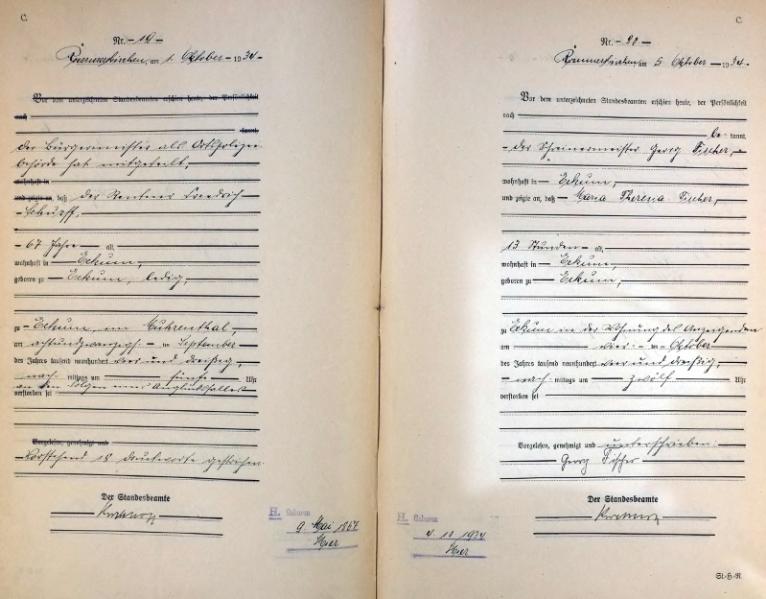 C.
Nr. 19
Rommerskirchen, am 1. Oktober 1934
Vor dem unterzeichneten Standesbeamten erschien heute, der Persönlichkeit
nach
kannt,
der Bürgermeister als Ortspolizei
behörde hat mitgeteilt,
wohnhaft in
und zeigte an, daß der Rentner Friedrich
67 Jahre alt,
wohnhaft in Eckum,
geboren zu Eckum, ledig,
zu Eckum, im
am achtundzwanzigsten September
des Jahres tausend neunhundert vier und dreißig,
nach mittags um fünf Uhr
an den Folgen eines Unglücksfalles
verstorben sei
Vorgelesen, genehmigt und
Vorstehend 18 Druckworte gestrichen
Der Standesbeamte
H. Geboren
9. Mai 1867
Hier
C.
Nr. 20
Rommerskirchen, am 5. Oktober 1934
Vor dem unterzeichneten Standesbeamten erschien heute, der Persönlichkeit
nach
be kannt,
der Schreinermeister Georg Fischer,
wohnhaft in Eckum,
und zeigte an, daß Maria Theresia Fischer,
13 Stunden alt,
wohnhaft in Eckum,
geboren zu Eckum,
zu Eckum in der Wohnung des Anzeigenden
am vier ten Oktober
des Jahres tausend neunhundert vier und dreißig,
nach mittags um zwölf Uhr
verstorben sei
Vorgelesen, genehmigt und unterschrieben:
Georg Fischer
Der Standesbeamte
H. Geboren
4.10.1934
Hier
St-H-R